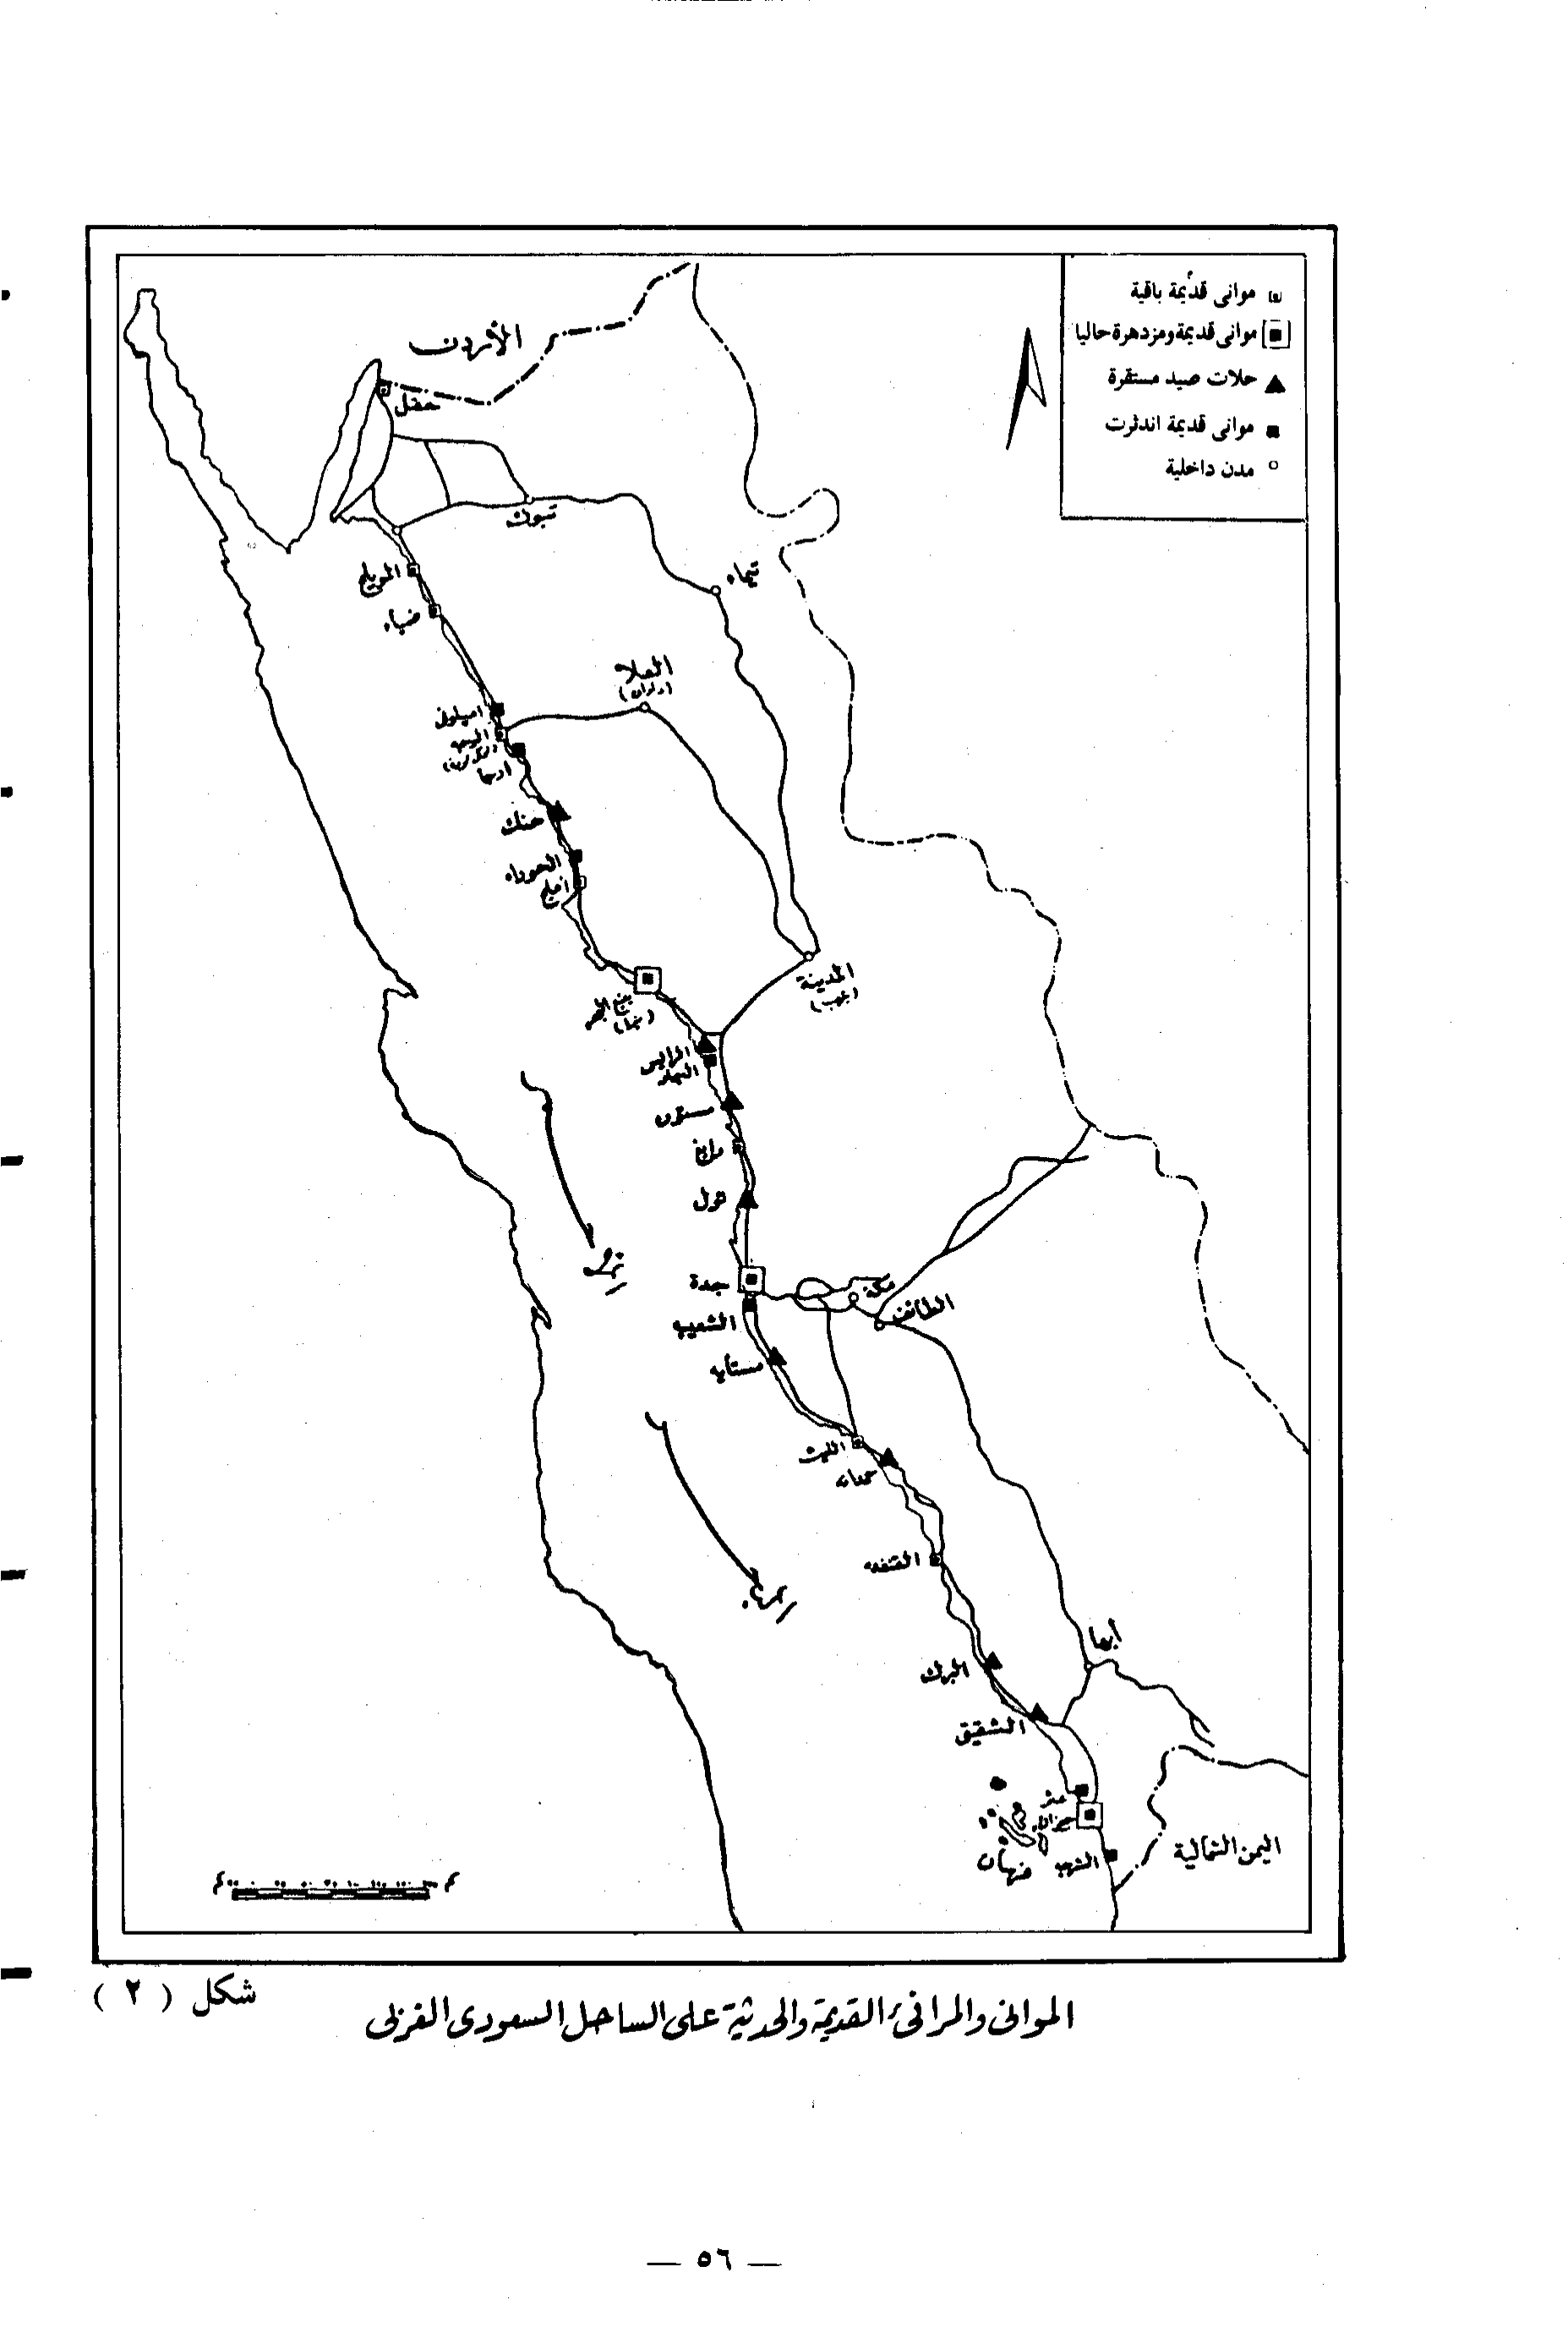 مواني قديمة باقية
مواني قديمة ومزدهرة حاليا
حلات صيد مستقرة
مواني قديمة اندثرت
مدن داخلية
الأردن
حقل
تبوك
تيماء
المويلح
ضباء
العلا
(ددان)
الوجه
حنك
الحوراء
املج
المدينة
(يثرب)
ينبع البحر
الرايس
الجار
مستورة
رابغ
ثول
جدة
مكة
الطائف
الشعيب
الليث
القنفذه
أبها
البرك
الشقيق
عثر
جيزان
اليمن الشمالية
شكل ( ٢ )
المواني والمرافئ القديمة والحديثة على الساحل السعودى الغربى
— ٥٦ —